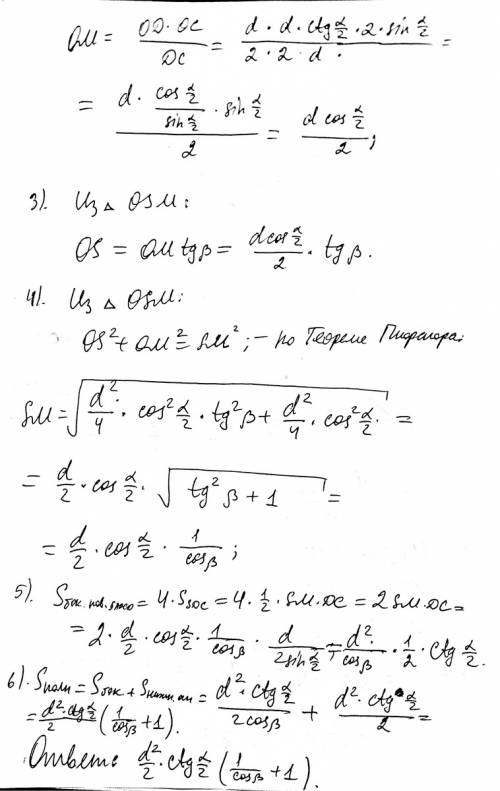 OM = OD · OC / DC = d · d · ctg α/2 · 2 · sin α/2 / 2 · 2 · d · =
= d · cos α/2 / sin α/2 · sin α/2 / 2 = d cos α/2 / 2 ;
3). Из △ OSM :
OS = OM tgβ = d cos α/2 / 2 · tg β.
4). Из △ OSM :
OS² + OM² = SM² ; – по Теореме Пифагора:
SM = √ d²/4 · cos² α/2 · tg² β + d²/4 · cos² α/2 · =
= d/2 · cos α/2 · √ tg² β + 1 =
= d/2 · cos α/2 · 1/cosβ ;
5). Sбок. пов. = 4 · S = 4 · 1/2 · SM · DC = 2 SM · DC =
= 2 · d/2 · cos α/2 · 1/cosβ · d / 2sin α/2 = d² · / cosβ · 1/2 · ctg α/2.
6). Sполн = Sбок + S = d² · ctg α/2 / 2cosβ + d² · ctg α/2 / 2 =
= d² · ctg α/2 / 2 ( 1/cosβ + 1 ).
Ответ: d²/2 · ctg α/2 ( 1/cosβ + 1 ).